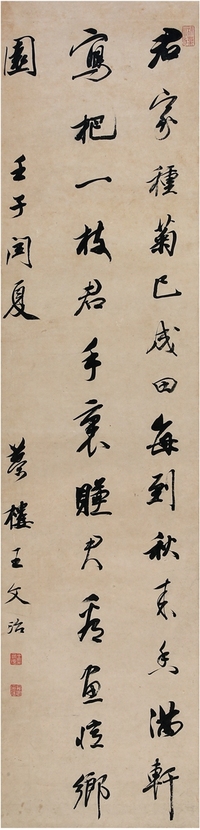 君家種菊已成田每到秋来香滿軒
寫把一枝君手裏賺君看畫憶鄉
園 壬子閏夏 夢樓王文治